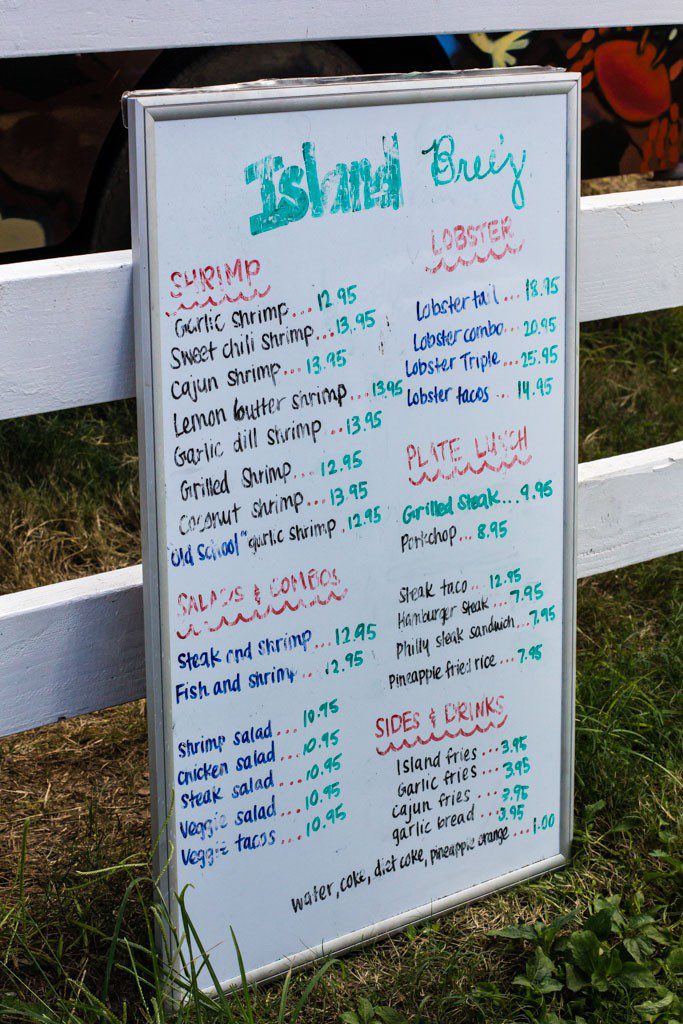 Island Breez
SHRIMP
Garlic shrimp...12.95
Sweet chili shrimp...13.95
Cajun shrimp...13.95
Lemon butter shrimp...13.95
Garlic dill shrimp..13.95
Grilled shrimp...12.95
Coconut shrimp...13.95
"Old School" garlic shrimp.12.95
SALADS & COMBOS
Steak and shrimp...12.95
Fish and shrimp...12.95
Shrimp salad...10.95
Chicken salad...10.95
Steak salad...10.95
Veggie salad...10.95
Veggie tacos....10.95
LOBSTER
Lobster tail...18.95
Lobster combo...20.95
Lobster Triple...25.95
Lobster tacos...14.95
PLATE LUNCH
Grilled Steak...9.95
Porkchop...8.95
Steak taco...12.95
Hamburger steak...7.95
Philly steak sandwich...7.95
Pineapple fried rice...7.95
SIDES & DRINKS
Island fries...3.95
Garlic fries...3.95
Cajun fries...3.95
garlic bread...3.95
water, coke, diet coke, pineapple orange...1.00